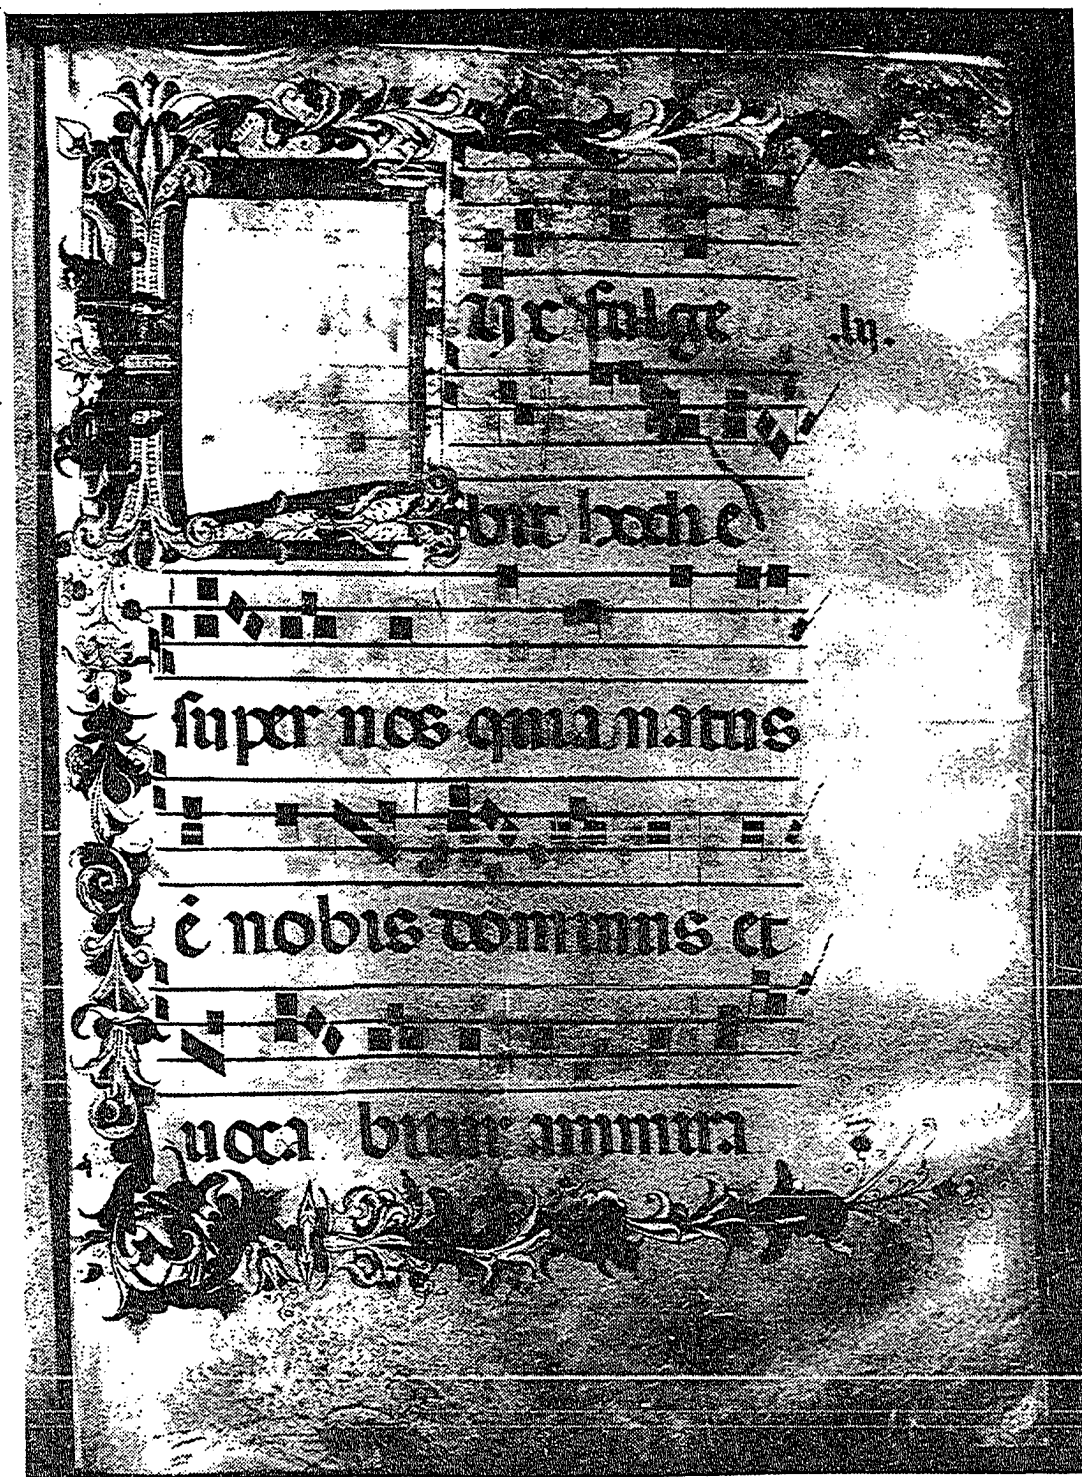 ux fulge
.lij.
bit hodi e
super nos quia natus
é nobis dominus et
uoca bitur ammira